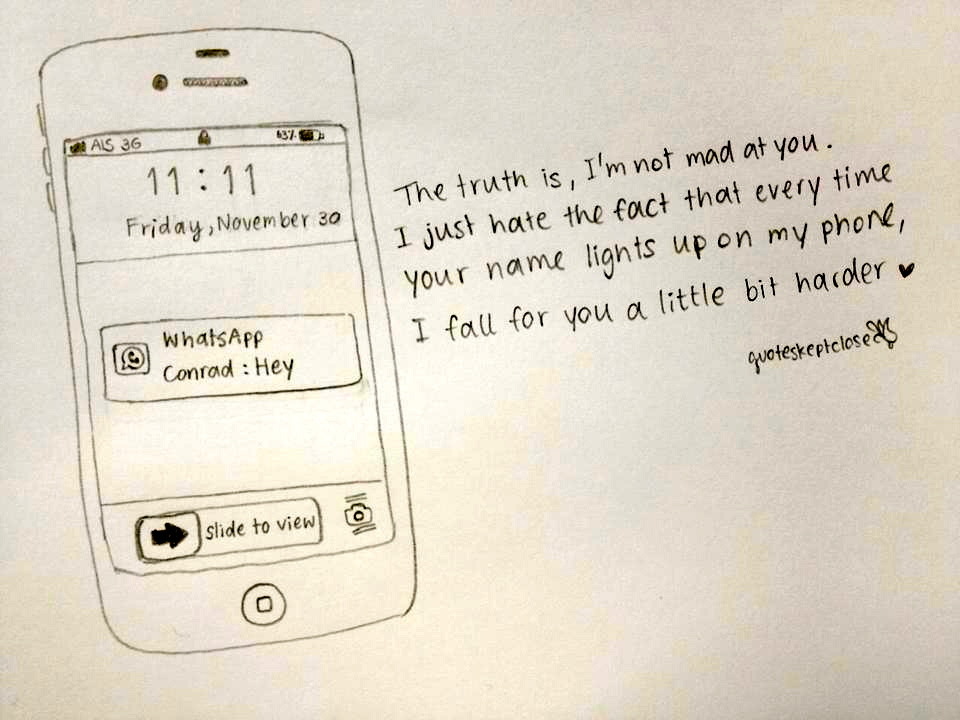 AIS 3G 63%
11:11
Friday, November 30
WhatsApp
Conrad : Hey
Slide to view
The truth is, I'm not mad at you.
I just hate the fact that every time
your name lights up on my phone,
I fall for you a little bit harder ♥
quoteskeptclose